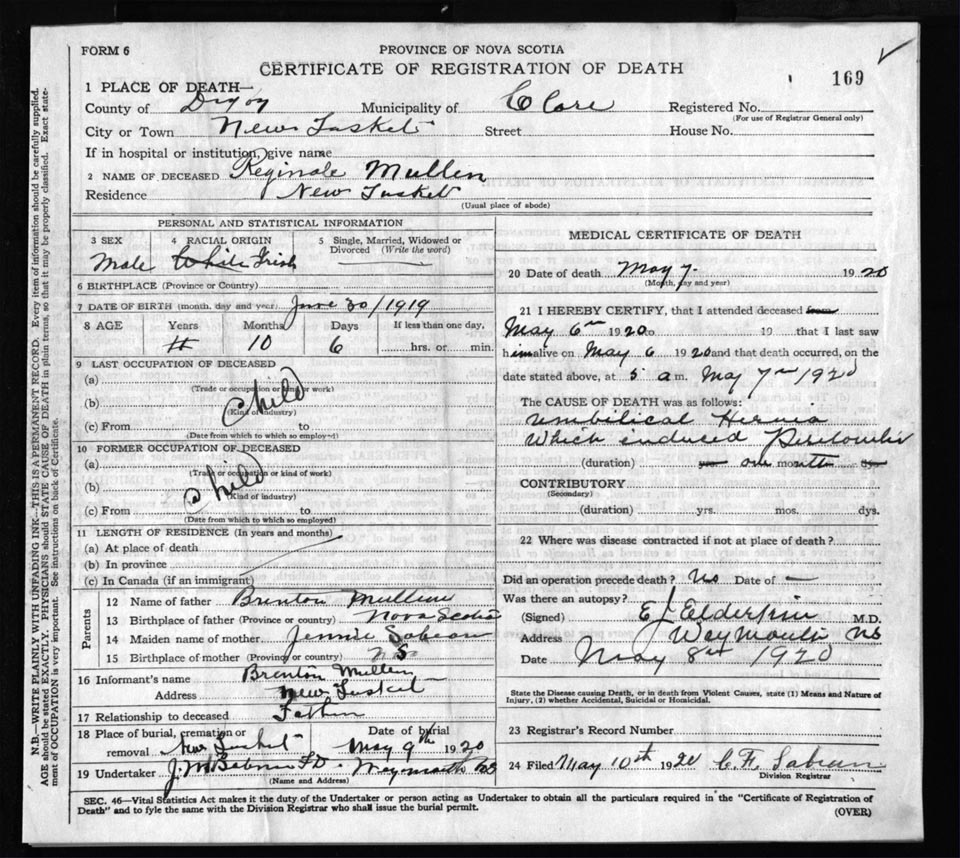 FORM 6
PROVINCE OF NOVA SCOTIA
CERTIFICATE OF REGISTRATION OF DEATH
169
1 PLACE OF DEATH—
County of Digby Municipality of Clare Registered No.
(For use of Registrar General only)
City or Town New Tusket Street House No.
If in hospital or institution, give name
2 NAME OF DECEASED Reginale Mullen
Residence New Tusket
(Usual place of abode)
PERSONAL AND STATISTICAL INFORMATION
3 SEX 4 RACIAL ORIGIN 5 Single, Married, Widowed or Divorced (Write the word)
Male White Irish
6 BIRTHPLACE (Province or Country)
7 DATE OF BIRTH (month, day and year) June 30/1919
8 AGE Years Months Days If less than one day,
10 6 hrs. or min.
9 LAST OCCUPATION OF DECEASED
(a)
(Trade or occupation or kind of work)
(b) child
(Kind of industry)
(c) From to
(Date from which to which so employed)
10 FORMER OCCUPATION OF DECEASED
(a)
(Trade or occupation or kind of work)
(b) child
(Kind of industry)
(c) From to
(Date from which to which so employed)
11 LENGTH OF RESIDENCE (in years and months)
(a) At place of death
(b) In province
(c) In Canada (if an immigrant)
Parents
12 Name of father Brenton Mullen
13 Birthplace of father (Province or country) Nova Scotia
14 Maiden name of mother Jennie Sabean
15 Birthplace of mother (Province or country) N S
16 Informant's name Brenton Mullen
Address New Tusket
17 Relationship to deceased Father
18 Place of burial, cremation or removal New Tusket Date of burial May 9th 1920
19 Undertaker Weymouth
(Name and Address)
MEDICAL CERTIFICATE OF DEATH
20 Date of death May 7 1920
(Month, day and year)
21 I HEREBY CERTIFY, that I attended deceased from
May 6th 1920 to 19 that I last saw
him alive on May 6 1920 and that death occurred, on the
date stated above, at 5 a m. May 7th 1920
The CAUSE OF DEATH was as follows:
Umbilical Hernia
which induced Peritonitis
(duration) yrs one month dys
CONTRIBUTORY
(Secondary)
(duration) yrs. mos. dys.
22 Where was disease contracted if not at place of death?
Did an operation precede death? No Date of —
Was there an autopsy?
(Signed) E J Elderkin M.D.
Address Weymouth NS
Date May 8th 1920
State the Disease causing Death, or in death from Violent Causes, state (1) Means and Nature of
Injury, (2) whether Accidental, Suicidal or Homicidal.
23 Registrar's Record Number
24 Filed May 10th 1920 C. F. Sabean
Division Registrar
SEC. 46—Vital Statistics Act makes it the duty of the Undertaker or person acting as Undertaker to obtain all the particulars required in the "Certificate of Registration of
Death" and to fyle the same with the Division Registrar who shall issue the burial permit.
(OVER)
N.B.—WRITE PLAINLY WITH UNFADING INK—THIS IS A PERMANENT RECORD. Every item of information should be carefully supplied.
AGE should be stated EXACTLY. PHYSICIANS should STATE CAUSE OF DEATH in plain terms, so that it may be properly classified. Exact state-
ment of OCCUPATION is very important. See instructions on back of Certificate.